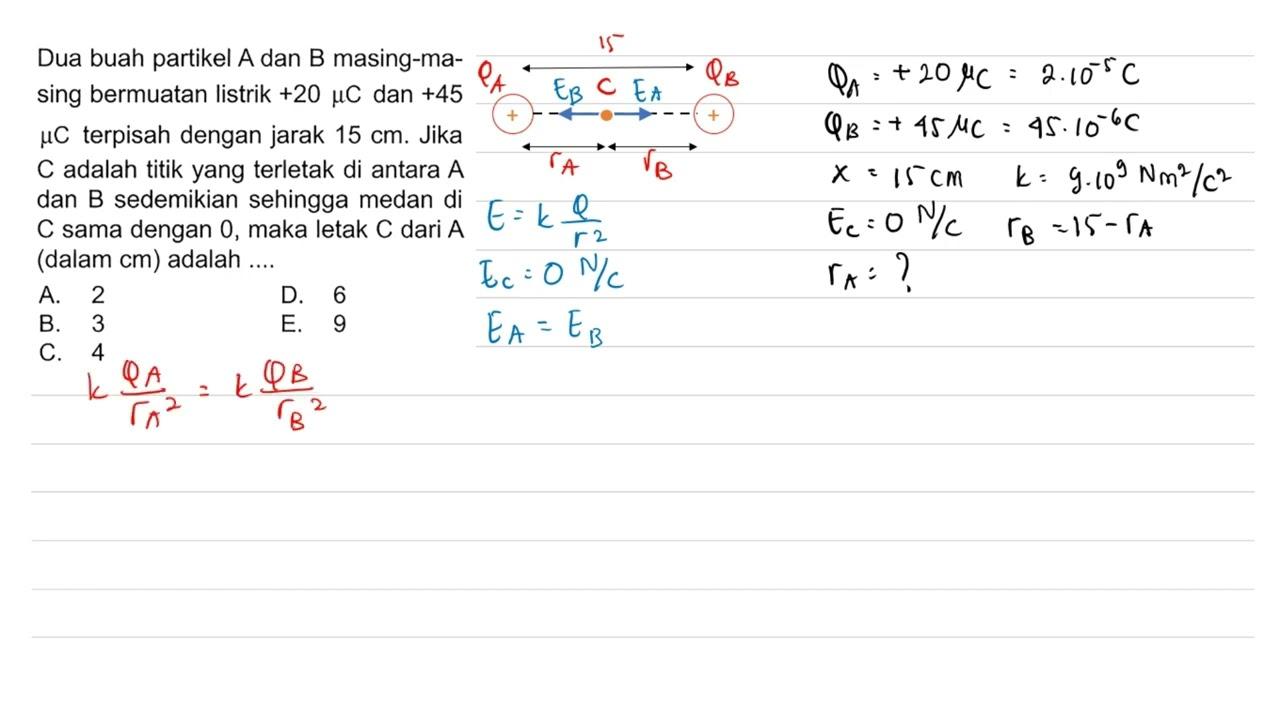 Dua buah partikel A dan B masing-ma-
sing bermuatan listrik +20 μC dan +45
μC terpisah dengan jarak 15 cm. Jika
C adalah titik yang terletak di antara A
dan B sedemikian sehingga medan di
C sama dengan 0, maka letak C dari A
(dalam cm) adalah ....
A. 2
D. 6
B. 3
E. 9
C. 4
k QA/rA² = k QB/rB²
15
QA
EB C EA
QB
+
+
rA
rB
E = k Q/r²
Ec = 0 N/C
EA = EB
QA = +20 μC = 2.10⁻⁵ C
QB = + 45 μC = 45.10⁻⁶ C
x = 15 cm k = 9.10⁹ Nm²/C²
Ec = 0 N/C rB = 15 - rA
rA = ?